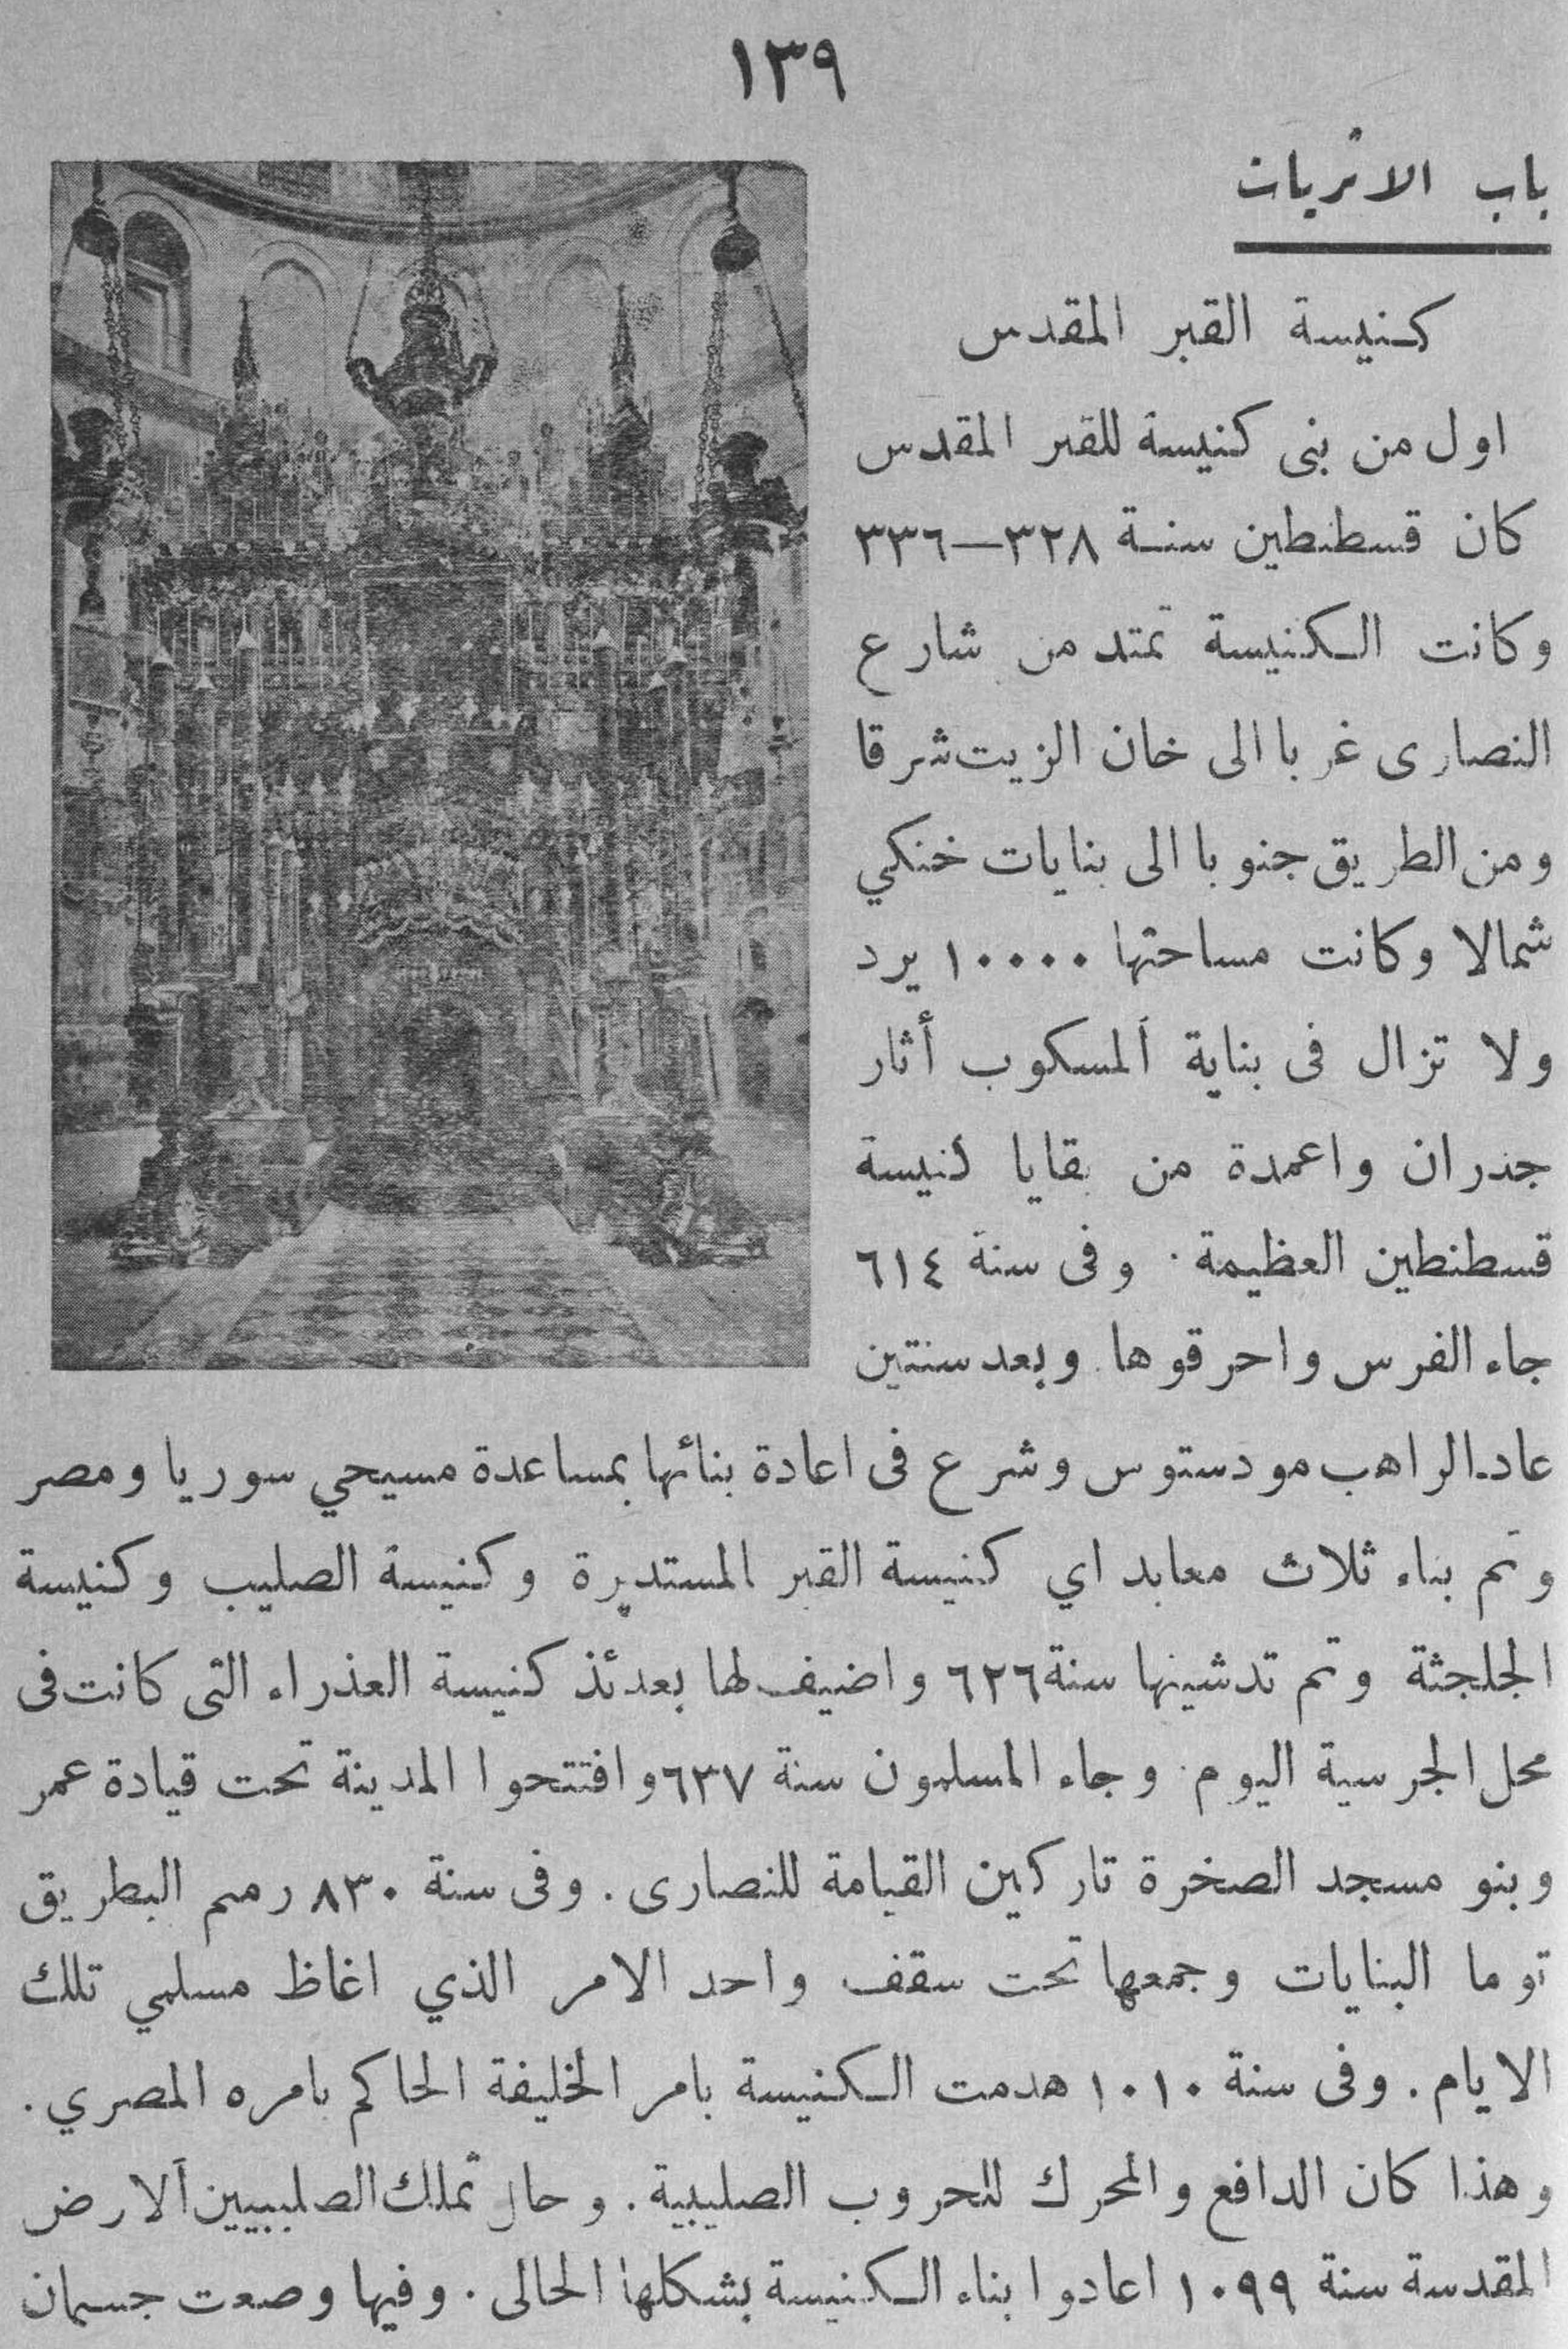 ١٣٩
باب الاثريات
كنيسة القبر المقدس
اول من بنى كنيسة للقبر المقدس
كان قسطنطين سنة ٣٢٨—٣٣٦
وكانت الكنيسة تمتد من شارع
النصارى غربا الى خان الزيت شرقا
ومن الطريق جنوبا الى بنايات خنكي
شمالا وكانت مساحتها ١٠٠٠٠ يرد
ولا تزال فى بناية المسكوب أثار
جذران واعمدة من بقايا كنيسة
قسطنطين العظيمة . وفى سنة ٦١٤
جاء الفرس واحرقوها . وبعد سنتين
عاد الراهب مودستوس وشرع فى اعادة بنائها بمساعدة مسيحي سوريا ومصر
وتم بناء ثلاث معابد اي كنيسة القبر المستديرة وكنيسة الصليب وكنيسة
الجلجثة وتم تدشينها سنة ٦٢٦ واضيف لها بعدئذ كنيسة العذراء التى كانت فى
محل الجرسية اليوم . وجاء المسلمون سنة ٦٣٧ وافتتحوا المدينة تحت قيادة عمر
وبنو مسجد الصخرة تاركين القيامة للنصارى . وفى سنة ٨٣٠ رمم البطريق
توما البنايات وجمعها تحت سقف واحد الامر الذي اغاظ مسلمي تلك
الايام . وفى سنة ١٠١٠ هدمت الكنيسة بامر الخليفة الحاكم بامره المصري .
وهذا كان الدافع والمحرك للحروب الصليبية . وحال تملك الصليبيين الارض
المقدسة سنة ١٠٩٩ اعادوا بناء الكنيسة بشكلها الحالى . وفيها وصعت جسمان